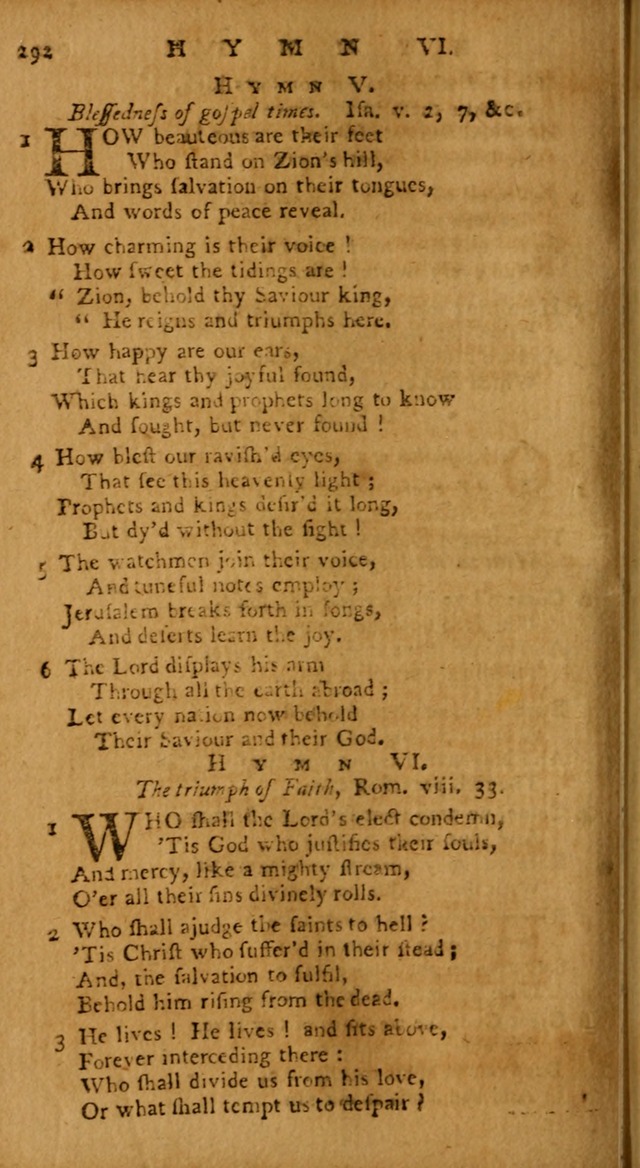 292 H Y M N VI.
H Y M N V.
Bleſſedneſs of goſpel times. Iſa. v. 2, 7, &c.
1 HOW beauteous are their feet
Who ſtand on Zion's hill,
Who brings ſalvation on their tongues,
And words of peace reveal.
2 How charming is their voice !
How ſweet the tidings are !
“ Zion, behold thy Saviour king,
“ He reigns and triumphs here.
3 How happy are our ears,
That hear thy joyful ſound,
Which kings and prophets long to know
And ſought, but never found !
4 How bleſt our raviſh'd eyes,
That ſee this heavenly light ;
Prophets and kings deſir'd it long,
But dy'd without the ſight !
5 The watchmen join their voice,
And tuneful notes employ ;
Jeruſalem breaks forth in ſongs,
And deſerts learn the joy.
6 The Lord diſplays his arm
Through all the earth abroad ;
Let every nation now behold
Their Saviour and their God.
H Y M N VI.
The triumph of Faith, Rom. viii. 33.
1 WHO ſhall the Lord's elect condemn,
'Tis God who juſtifies their ſouls,
And mercy, like a mighty ſtream,
O'er all their ſins divinely rolls.
2 Who ſhall ajudge the ſaints to hell ?
'Tis Chriſt who ſuffer'd in their ſtead ;
And, the ſalvation to fulfil,
Behold him riſing from the dead.
3 He lives ! He lives ! and ſits above,
Forever interceding there :
Who ſhall divide us from his love,
Or what ſhall tempt us to deſpair ?